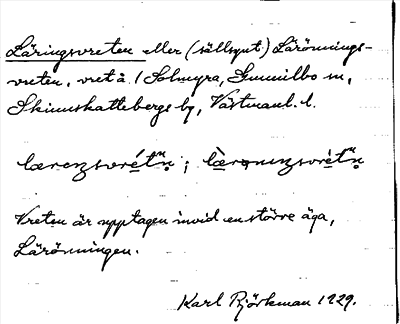 Läringsvreten eller (sällsynt) Lärönnings-
vreten, vret å 1 Solmyra, Gunnilbo sn,
Skinnskattebergs hd, Västmanl. l.
Vreten är upptagen invid en större äga,
Lärönningen.
Karl Björkman 1929.